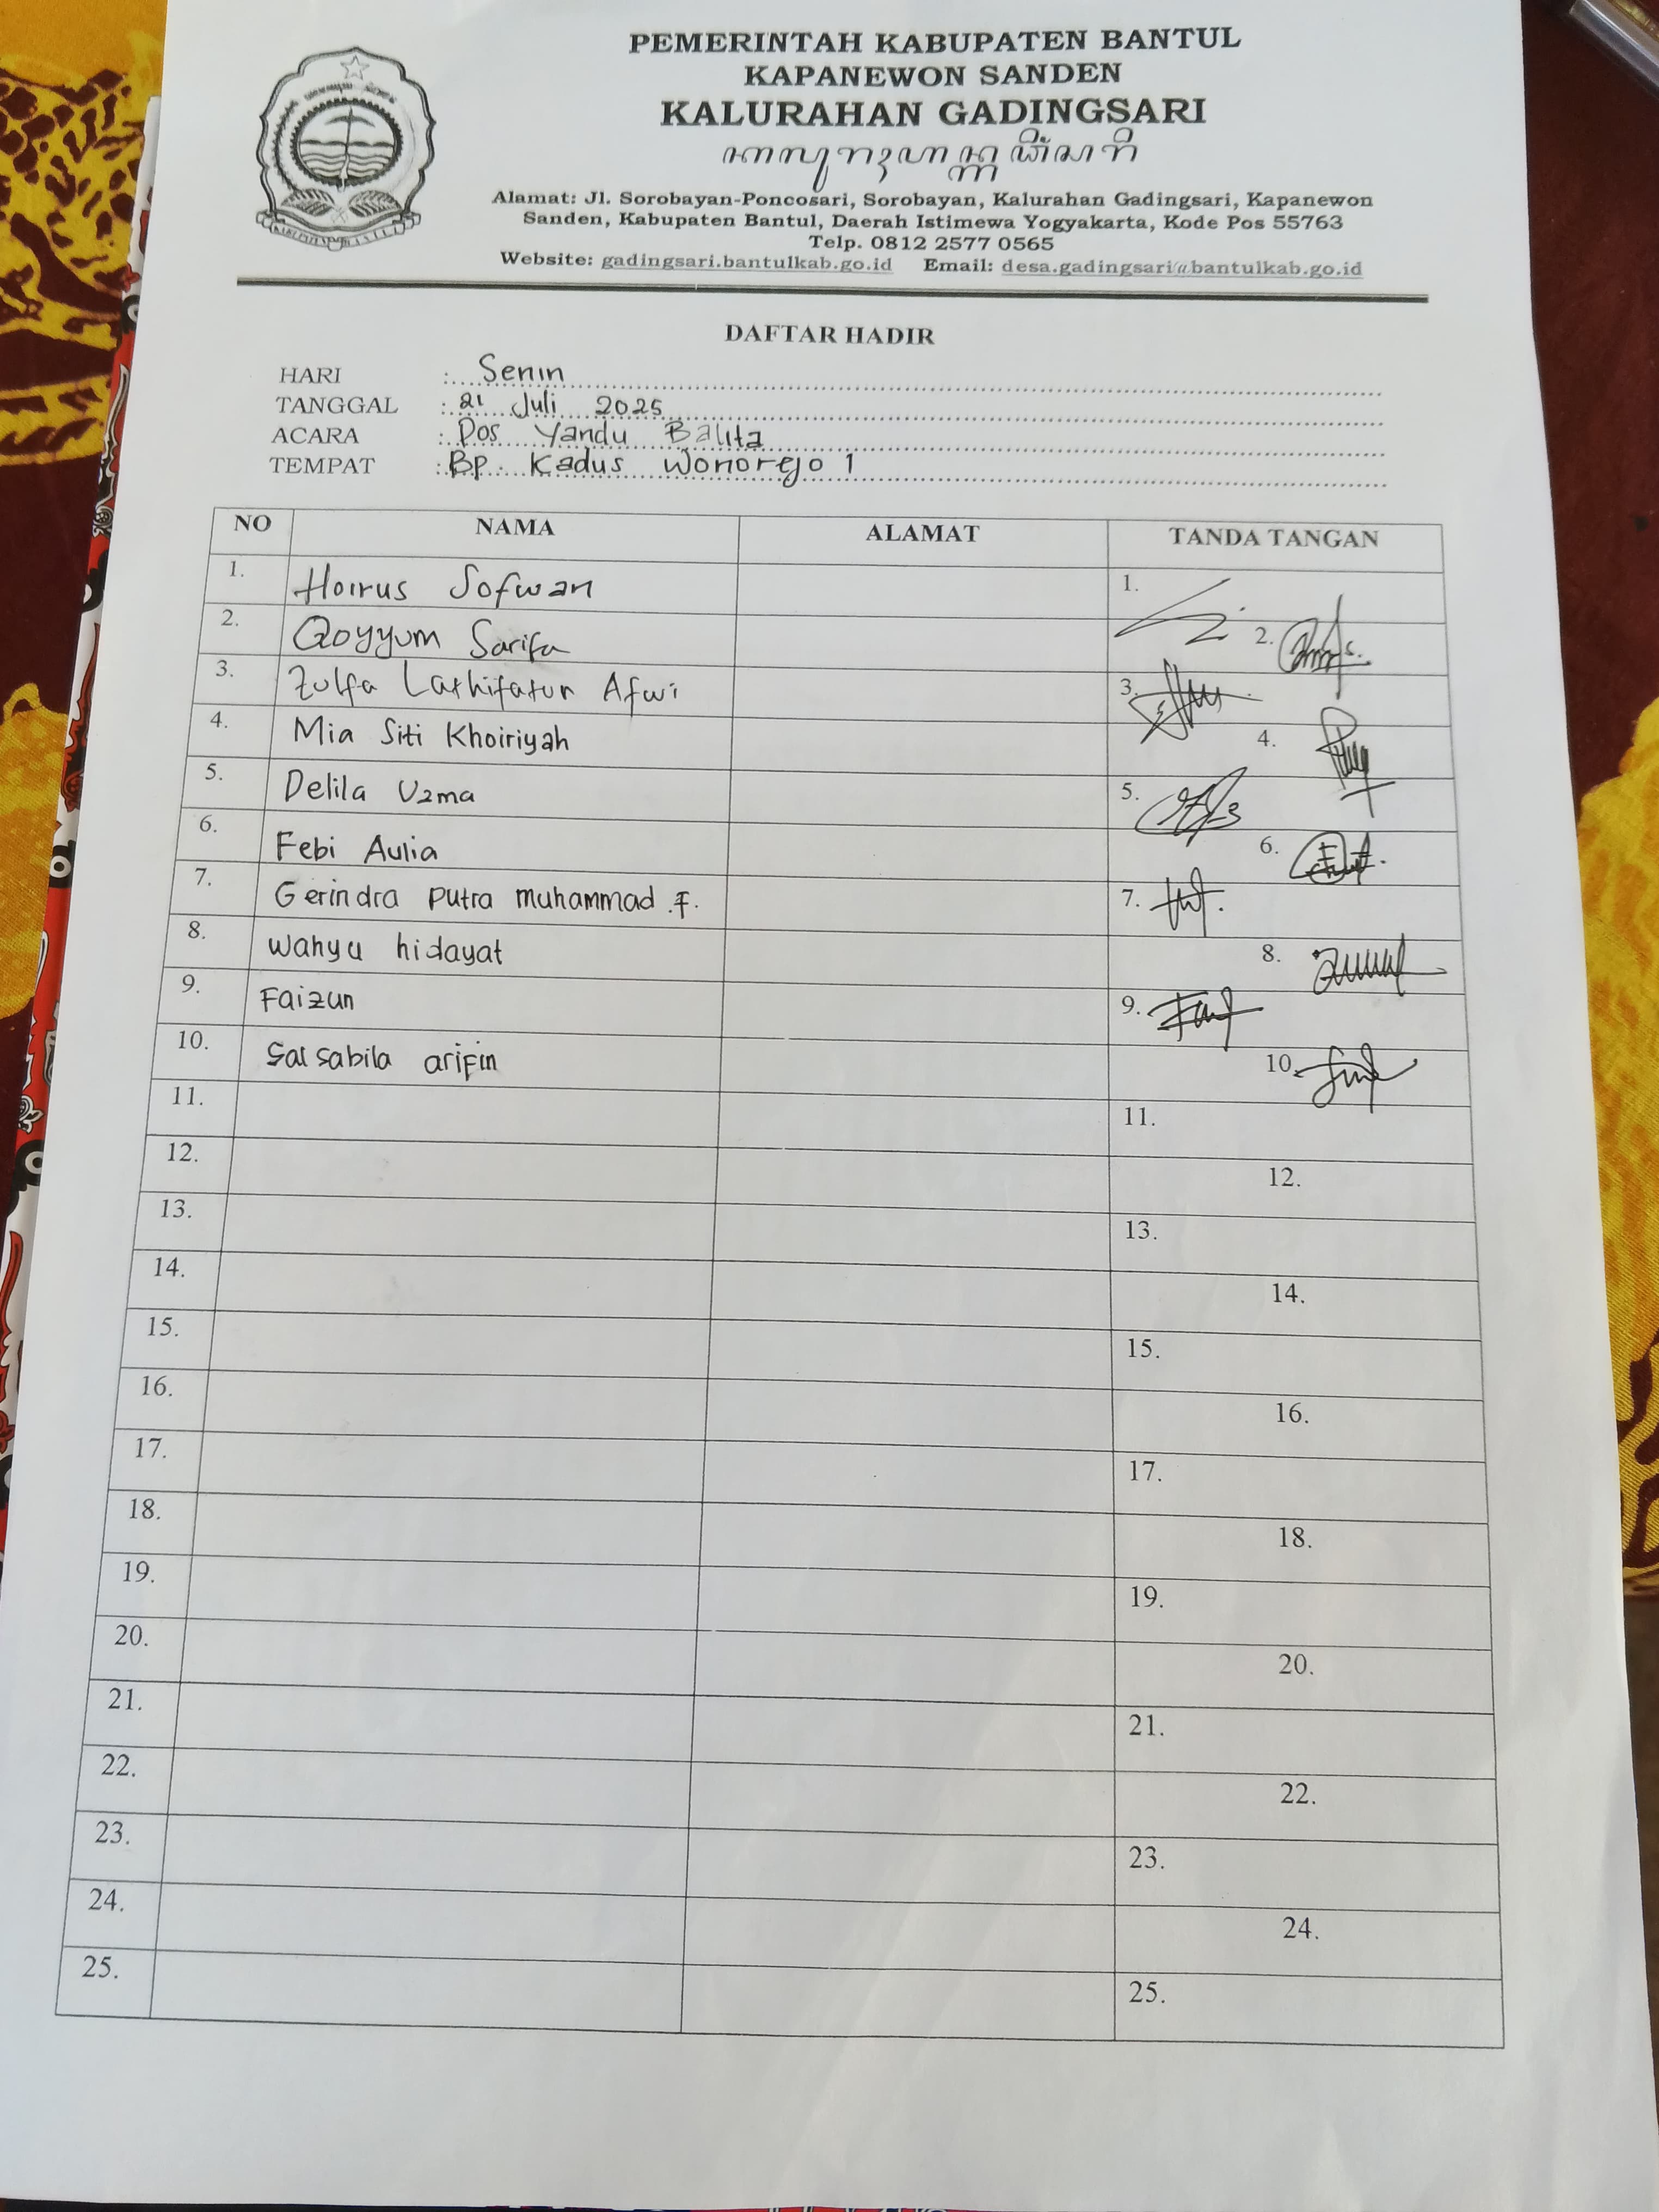 PEMERINTAH KABUPATEN BANTUL
KAPANEWON SANDEN
KALURAHAN GADINGSARI
Alamat: Jl. Sorobayan-Poncosari, Sorobayan, Kalurahan Gadingsari, Kapanewon
Sanden, Kabupaten Bantul, Daerah Istimewa Yogyakarta, Kode Pos 55763
Telp. 0812 2577 0565
Website: gadingsari.bantulkab.go.id Email: desa.gadingsari@bantulkab.go.id
DAFTAR HADIR
HARI : Senin
TANGGAL : 21 Juli 2025
ACARA : Pos Yandu Balita
TEMPAT : Bp. Kadus Wonorejo 1
NO NAMA ALAMAT TANDA TANGAN
1. Hoirus Sofwan 1.
2. Qoyyum Sarifa 2.
3. Zulfa Lathifatur Afwi 3.
4. Mia Siti Khoiriyah 4.
5. Delila Uzma 5.
6. Febi Aulia 6.
7. Gerindra Putra muhammad .F. 7.
8. wahyu hidayat 8.
9. Faizun 9.
10. Salsabila arifin 10.
11. 11.
12. 12.
13. 13.
14. 14.
15. 15.
16. 16.
17. 17.
18. 18.
19. 19.
20. 20.
21. 21.
22. 22.
23. 23.
24. 24.
25. 25.